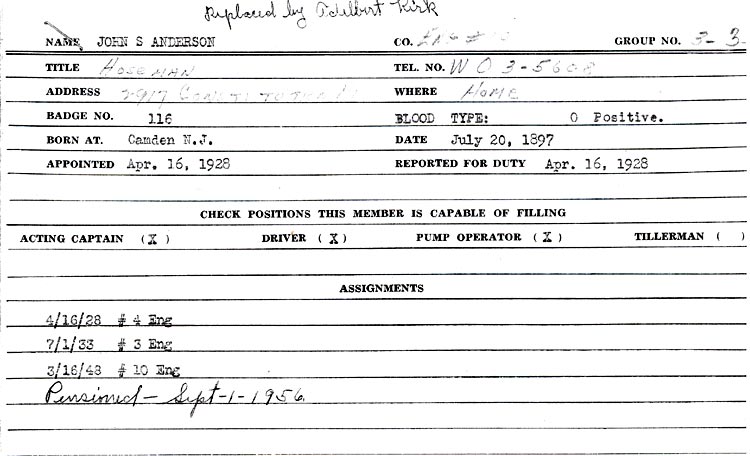 Replaced by Adelbert Kirk
NAME JOHN S ANDERSON CO. ENG # 10 GROUP NO. 3-3
TITLE HOSEMAN TEL. NO. WO 3-5608
ADDRESS 2917 WHERE HOME
BADGE NO. 116 BLOOD TYPE: O Positive.
BORN AT. Camden N.J. DATE July 20, 1897
APPOINTED Apr. 16, 1928 REPORTED FOR DUTY Apr. 16, 1928
CHECK POSITIONS THIS MEMBER IS CAPABLE OF FILLING
ACTING CAPTAIN (X) DRIVER (X) PUMP OPERATOR (X) TILLERMAN ( )
ASSIGNMENTS
4/16/28 # 4 Eng
7/1/33 # 3 Eng
3/16/48 # 10 Eng
Pensioned - Sept-1-1956